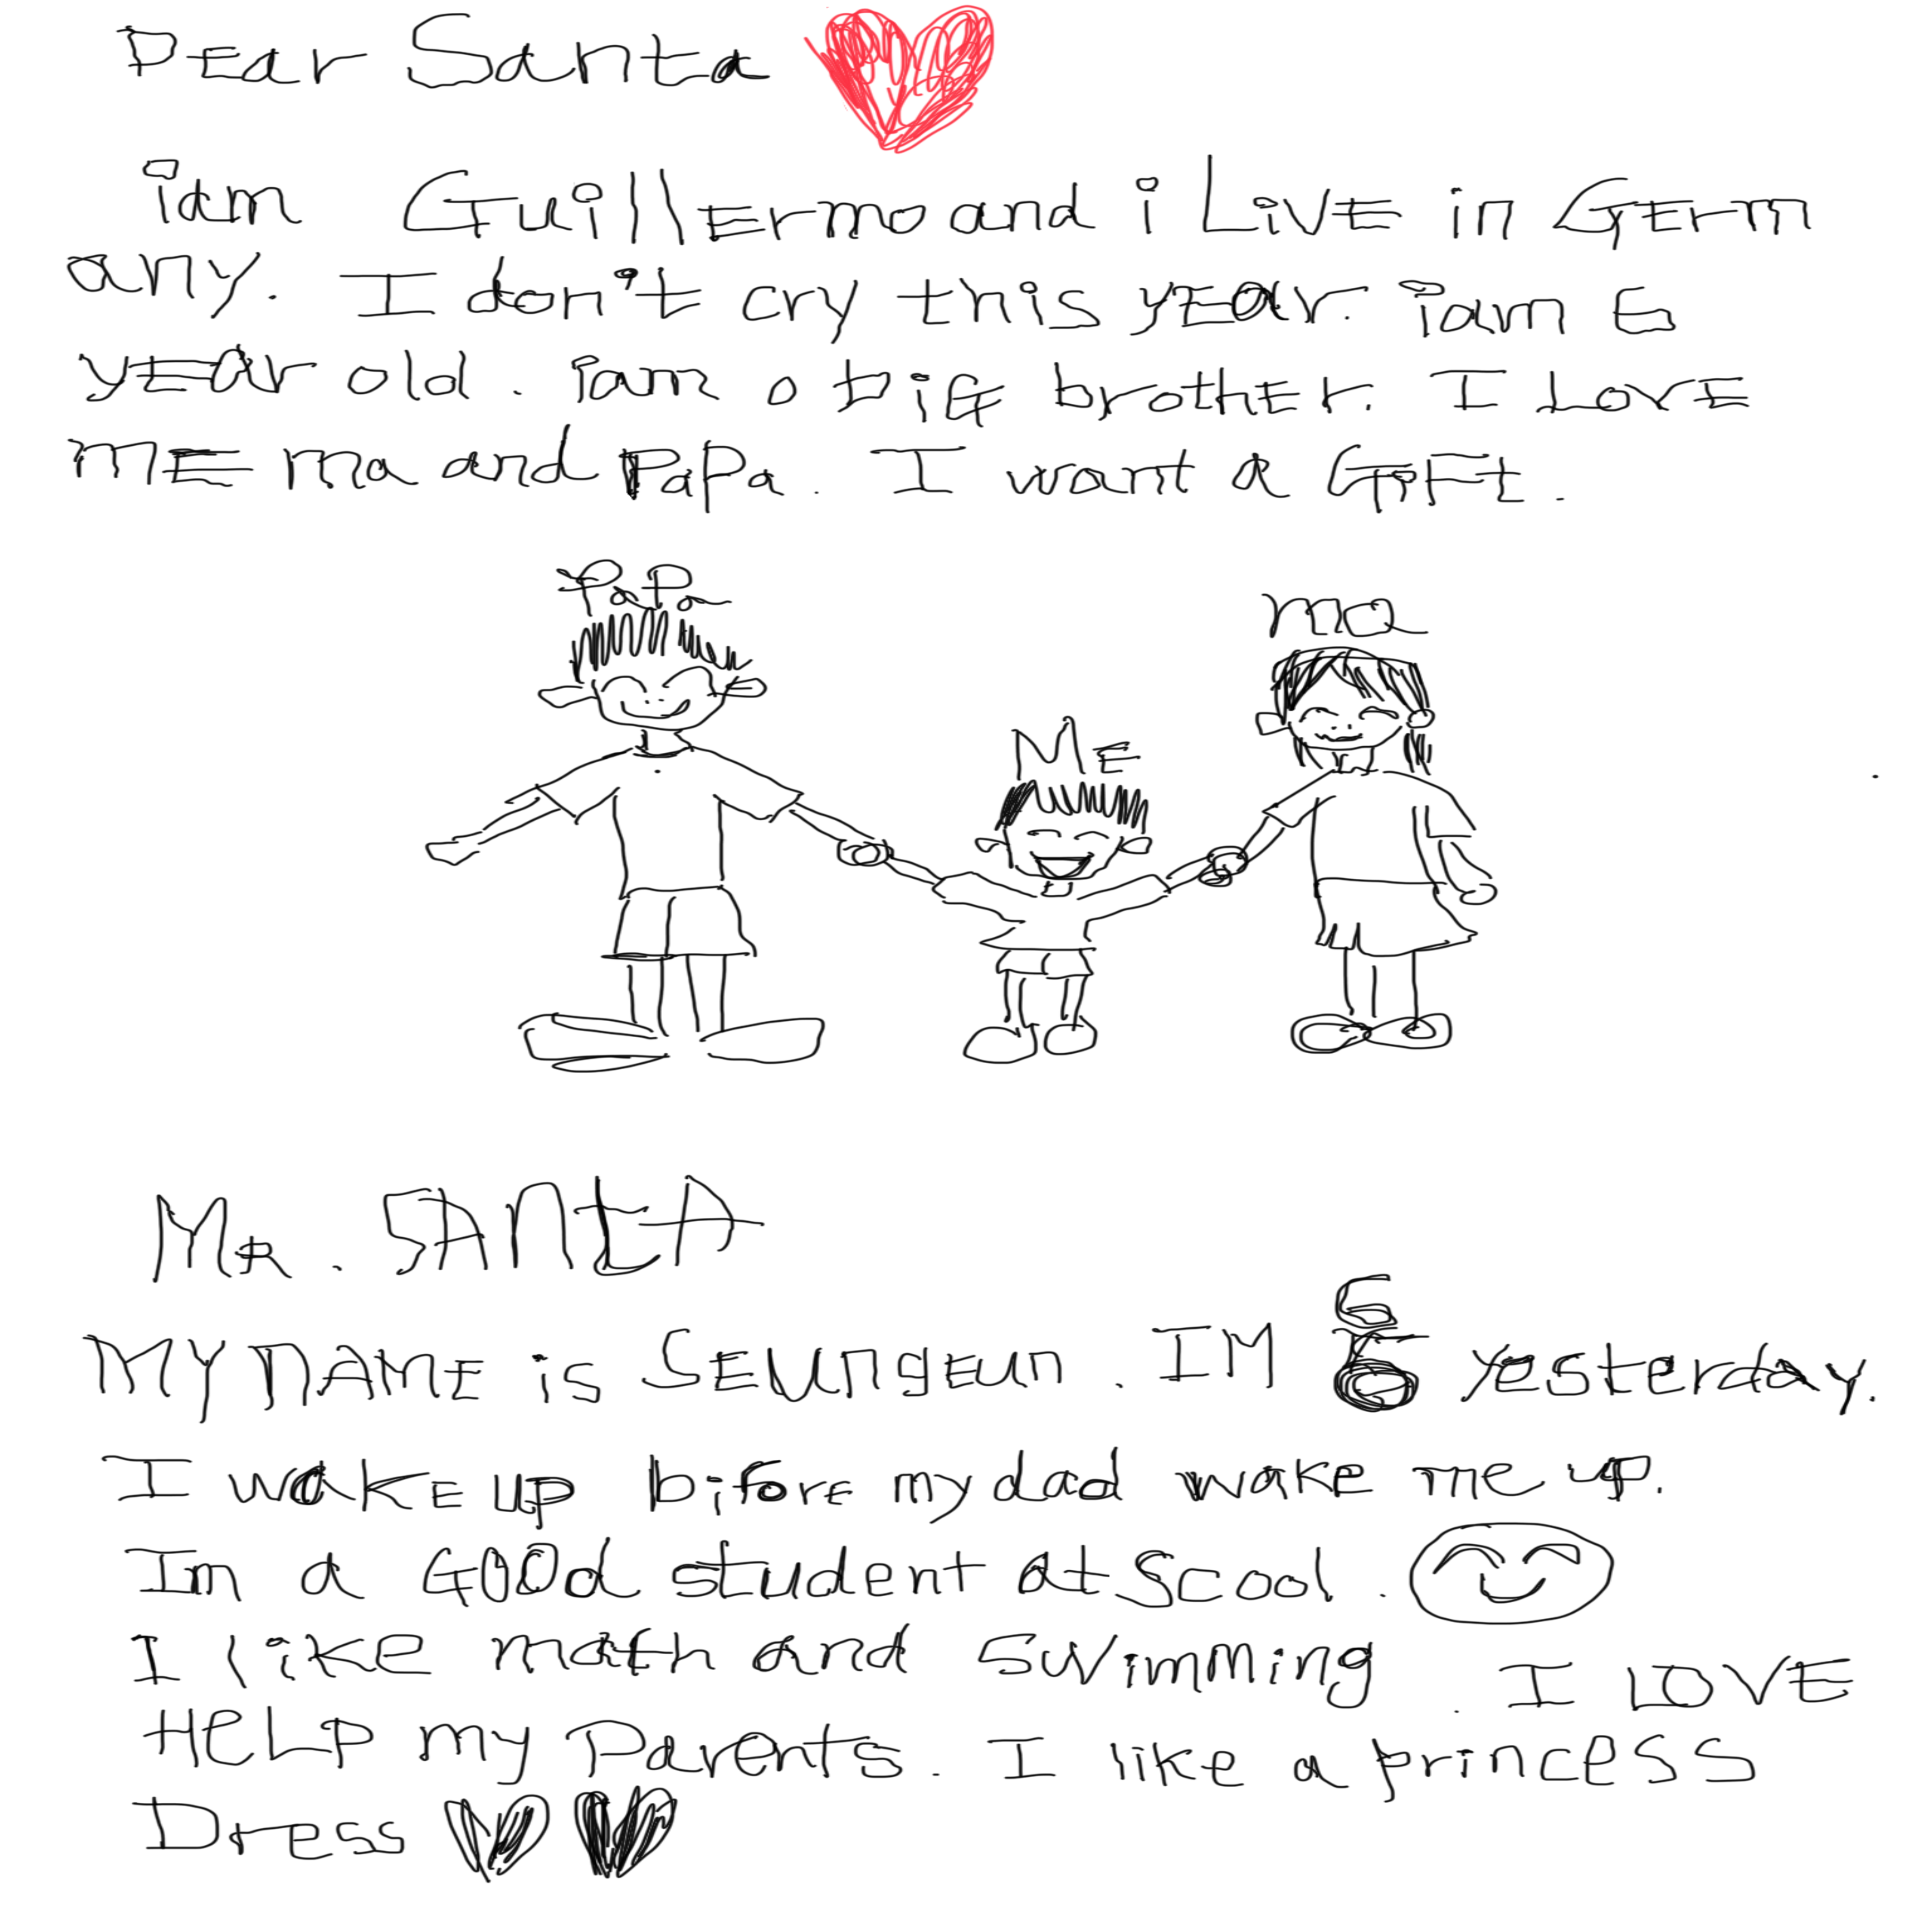 Dear Santa
iam Guillermo and i Live in Germ
any. I don't cry this year. iam 6
year old. iam a big brother. I Love
me ma and PaPa. I want a GiFt.
PaPa
ma
ME
MR. SANtA
6
MY NAME is SEUngEun. IM yesterday.
I wakE up biforE my dad wake me up.
Im a GOOd student at Scool.
I like math and Swimming. I LOVE
HeLP my Parents. I like a princess
Dress